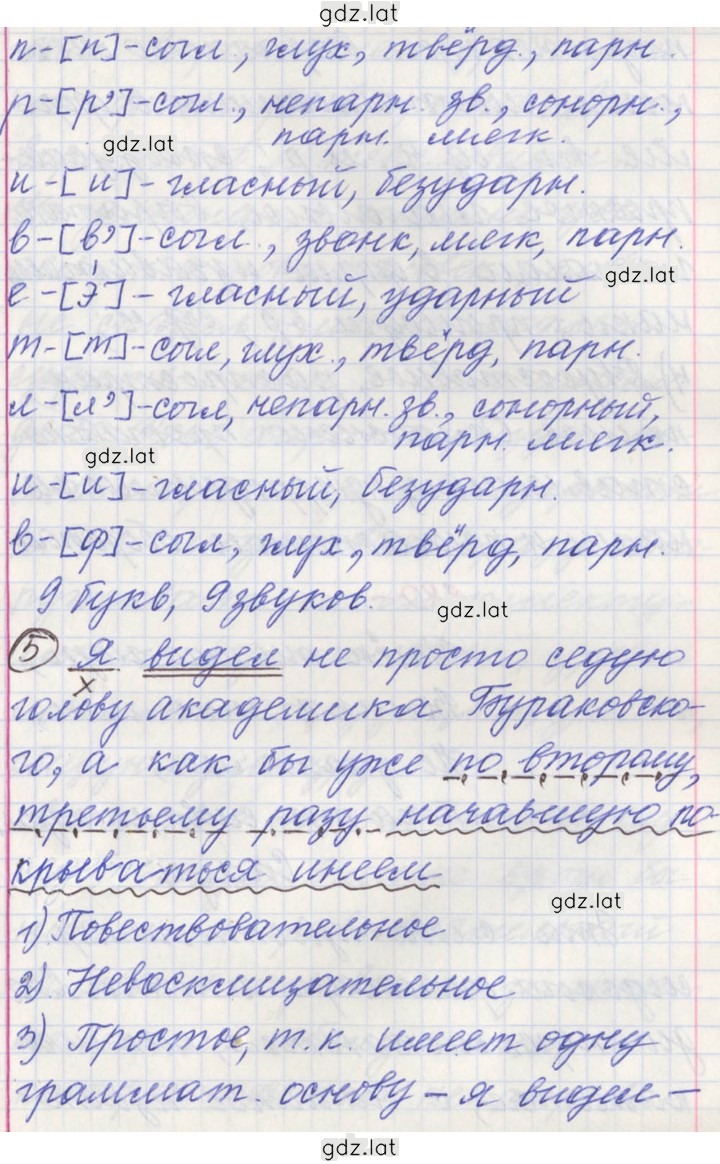 gdz.lat
п-[п]-согл., глух, твёрд., парн.
р-[р']-согл., непарн. зв., сонорн.,
gdz.lat
парн. мягк
и-[и]-гласный, безударн.
в-[в']-согл., звонк, мягк, парн.
gdz.lat
е-[э́]-гласный, ударный
т-[т]-согл, глух., твёрд, парн.
л-[л']-согл, непарн. зв., сонорный,
парн. мягк.
gdz.lat
и-[и]-гласный, безударн.
в-[ф]-согл, глух, твёрд, парн.
9 букв, 9 звуков.
gdz.lat
5 Я видел не просто седую
х
голову академика Бураковско-
го, а как бы уже по второму,
третьему разу начавшую по-
крываться инеем
gdz.lat
1) Повествовательное
2). Невосклицательное
3) Простое, т.к. имеет одну
граммат. основу - я видел -
gdz.lat